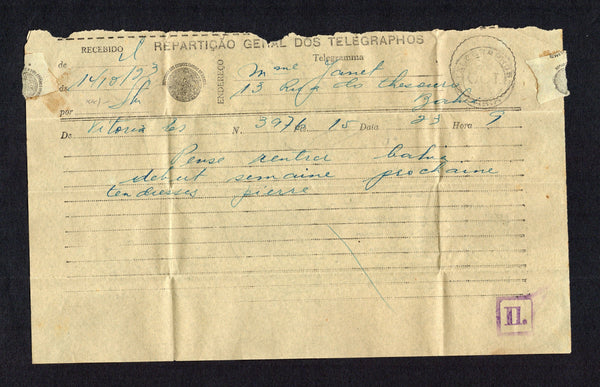 REPARTIÇÃO GERAL DOS TELEGRAPHOS
RECEBIDO
Telegramma
de
ENDEREÇO
Mme Janet
ds 14/10/23
13 Rua do thesouro
por
Bahia
De Vitoria Es N. 3976 15 Data 23 Hora 9
Pense rentrer bahia
debut semaine prochaine
tendresses pierre
II.